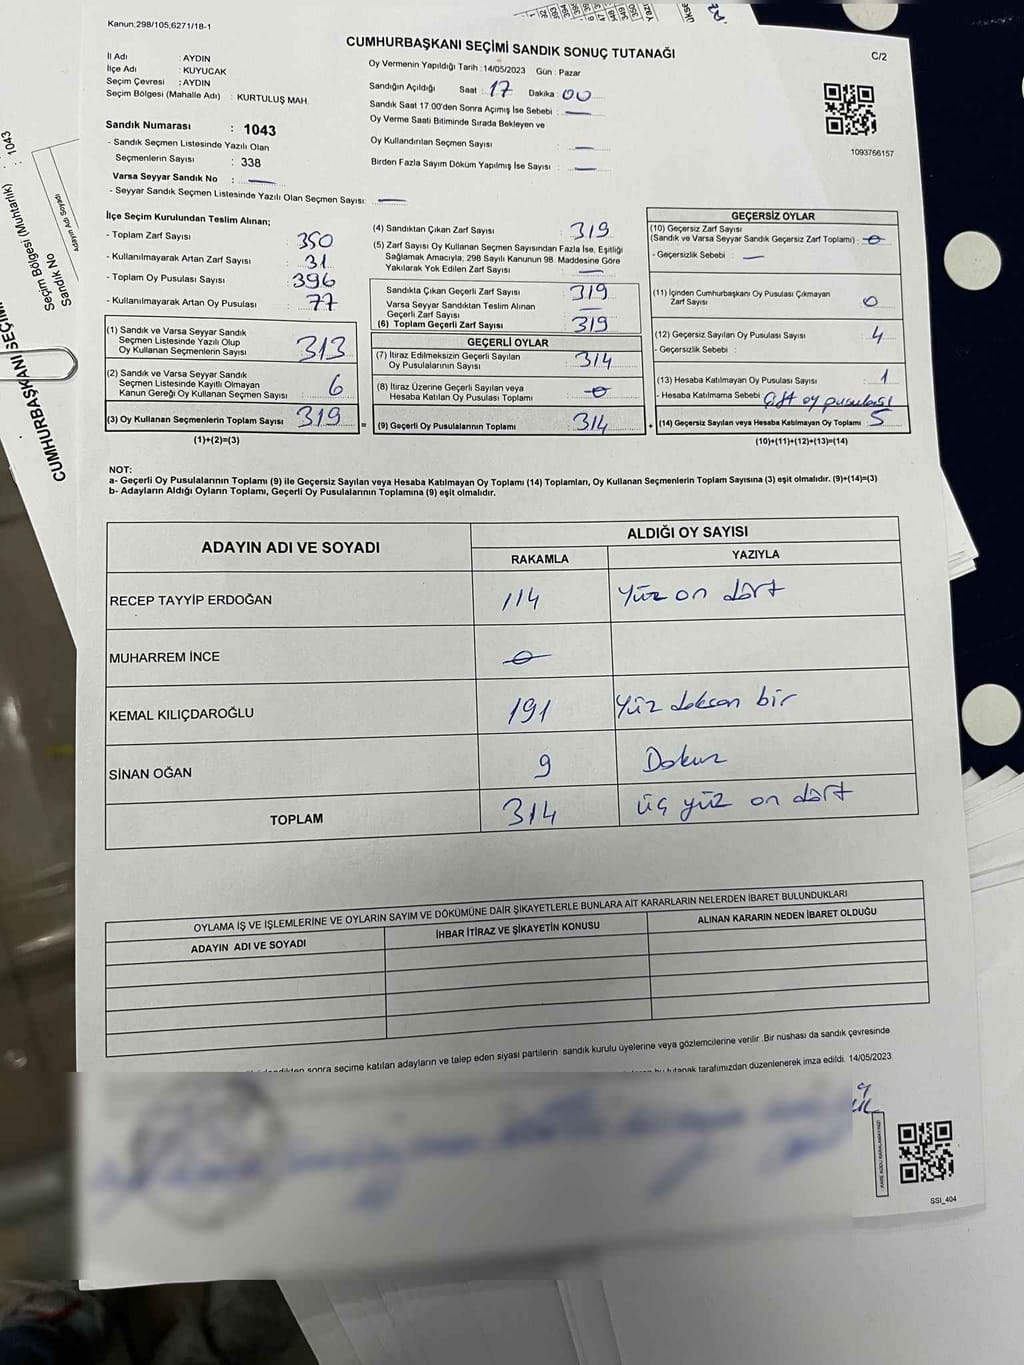 Kanun.298/105,6271/18-1
CUMHURBAŞKANI SEÇİMİ SANDIK SONUÇ TUTANAĞI
C/2
İl Adı : AYDIN
İlçe Adı : KUYUCAK
Seçim Çevresi : AYDIN
Seçim Bölgesi (Mahalle Adı) : KURTULUŞ MAH.
Oy Vermenin Yapıldığı Tarih : 14/05/2023 Gün : Pazar
Sandığın Açıldığı Saat : 17 Dakika : 00
Sandık Saat 17:00'den Sonra Açımış İse Sebebi : —
Oy Verme Saati Bitiminde Sırada Bekleyen ve
Oy Kullandırılan Seçmen Sayısı : —
Birden Fazla Sayım Döküm Yapılmış İse Sayısı : —
1093766157
Sandık Numarası : 1043
- Sandık Seçmen Listesinde Yazılı Olan
Seçmenlerin Sayısı : 338
Varsa Seyyar Sandık No : —
- Seyyar Sandık Seçmen Listesinde Yazılı Olan Seçmen Sayısı: —
İlçe Seçim Kurulundan Teslim Alınan;
- Toplam Zarf Sayısı : 350
- Kullanılmayarak Artan Zarf Sayısı : 31
- Toplam Oy Pusulası Sayısı : 396
- Kullanılmayarak Artan Oy Pusulası : 77
(1) Sandık ve Varsa Seyyar Sandık
Seçmen Listesinde Yazılı Olup
Oy Kullanan Seçmenlerin Sayısı : 313
(2) Sandık ve Varsa Seyyar Sandık
Seçmen Listesinde Kayıtlı Olmayan
Kanun Gereği Oy Kullanan Seçmen Sayısı : 6
(3) Oy Kullanan Seçmenlerin Toplam Sayısı : 319
(1)+(2)=(3)
(4) Sandıktan Çıkan Zarf Sayısı : 319
(5) Zarf Sayısı Oy Kullanan Seçmen Sayısından Fazla İse, Eşitliği
Sağlamak Amacıyla, 298 Sayılı Kanunun 98. Maddesine Göre
Yakılarak Yok Edilen Zarf Sayısı : —
Sandıkta Çıkan Geçerli Zarf Sayısı : 319
Varsa Seyyar Sandıktan Teslim Alınan
Geçerli Zarf Sayısı : —
(6) Toplam Geçerli Zarf Sayısı : 319
GEÇERLİ OYLAR
(7) İtiraz Edilmeksizin Geçerli Sayılan
Oy Pusulalarının Sayısı : 314
(8) İtiraz Üzerine Geçerli Sayılan veya
Hesaba Katılan Oy Pusulası Toplamı : 0
= (9) Geçerli Oy Pusulalarının Toplamı : 314
GEÇERSİZ OYLAR
(10) Geçersiz Zarf Sayısı
(Sandık ve Varsa Seyyar Sandık Geçersiz Zarf Toplamı) : 0
- Geçersizlik Sebebi : —
(11) İçinden Cumhurbaşkanı Oy Pusulası Çıkmayan
Zarf Sayısı : 0
(12) Geçersiz Sayılan Oy Pusulası Sayısı : 4
- Geçersizlik Sebebi :
(13) Hesaba Katılmayan Oy Pusulası Sayısı : 1
- Hesaba Katılmama Sebebi : Çift oy pusulası
+ (14) Geçersiz Sayılan veya Hesaba Katılmayan Oy Toplamı : 5
(10)+(11)+(12)+(13)=(14)
NOT:
a- Geçerli Oy Pusulalarının Toplamı (9) ile Geçersiz Sayılan veya Hesaba Katılmayan Oy Toplamı (14) Toplamları, Oy Kullanan Seçmenlerin Toplam Sayısına (3) eşit olmalıdır. (9)+(14)=(3)
b- Adayların Aldığı Oyların Toplamı, Geçerli Oy Pusulalarının Toplamına (9) eşit olmalıdır.
ADAYIN ADI VE SOYADI
ALDIĞI OY SAYISI
RAKAMLA YAZIYLA
RECEP TAYYİP ERDOĞAN 114 Yüz on dört
MUHARREM İNCE 0
KEMAL KILIÇDAROĞLU 191 Yüz doksan bir
SİNAN OĞAN 9 Dokuz
TOPLAM 314 üç yüz on dört
OYLAMA İŞ VE İŞLEMLERİNE VE OYLARIN SAYIM VE DÖKÜMÜNE DAİR ŞİKAYETLERLE BUNLARA AİT KARARLARIN NELERDEN İBARET BULUNDUKLARI
ADAYIN ADI VE SOYADI İHBAR İTİRAZ VE ŞİKAYETİN KONUSU ALINAN KARARIN NEDEN İBARET OLDUĞU
sonra seçime katılan adayların ve talep eden siyasi partilerin sandık kurulu üyelerine veya gözlemcilerine verilir .Bir nüshası da sandık çevresinde
tutanak tarafımızdan düzenlenerek imza edildi. 14/05/2023
SSI_404
1043
Seçim Bölgesi (Muhtarlık) :
Sandık No
Adayın Adı Soyadı
CUMHURBAŞKANI SEÇİM